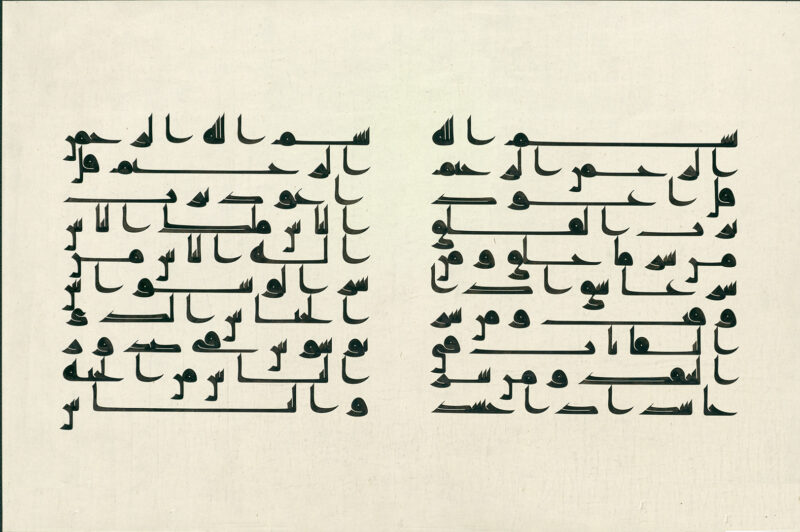 بسم الله
الرحمن الرحيم
قل اعوذ
برب الفلق
من شر ما خلق ومن
شر غاسق اذا
وقب ومن شر
النفاثات في
العقد ومن شر
حاسد اذا حسد
بسم الله الرحمن
الرحيم قل
اعوذ برب
الناس ملك الناس
اله الناس من
شر الوسواس
الخناس الذي
يوسوس في صدور
الناس من الجنة
والناس